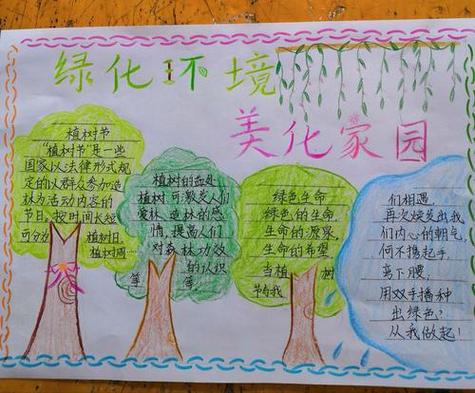 绿化环境
美化家园
植树节
“植树节”是一些
国家以法律形式规
定的以群众参加造
林为活动内容的
节日。按时间长短
可分为 植树日、
植树周…
植树的益处
植树,可激发人们
爱林、造林的感
情,提高人们
对森林功效
的认识
等 等
绿色生命
绿色,的生命
生命的源泉,
生命的希望。
当植 树
节与我
们相遇,
再次焕发出我
们内心的朝气
何不携起手
弯下腰
用双手播种
出绿色?
从我做起!